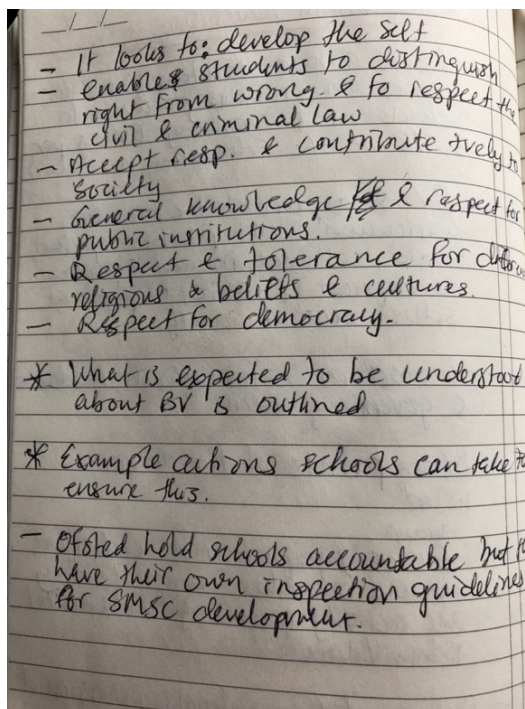 - It looks to: develop the self
- enables students to distinguish
right from wrong & to respect the
civil & criminal law
- Accept resp. & contribute +vely to
society
- General knowledge & respect for
public institutions.
- Respect & tolerance for
religious & beliefs & cultures.
- Respect for democracy.
* What is expected to be understood
about BV is outlined
* Example actions schools can take to
ensure this.
- Ofsted hold schools accountable but
have their own inspection guidelines
for SMSC development.